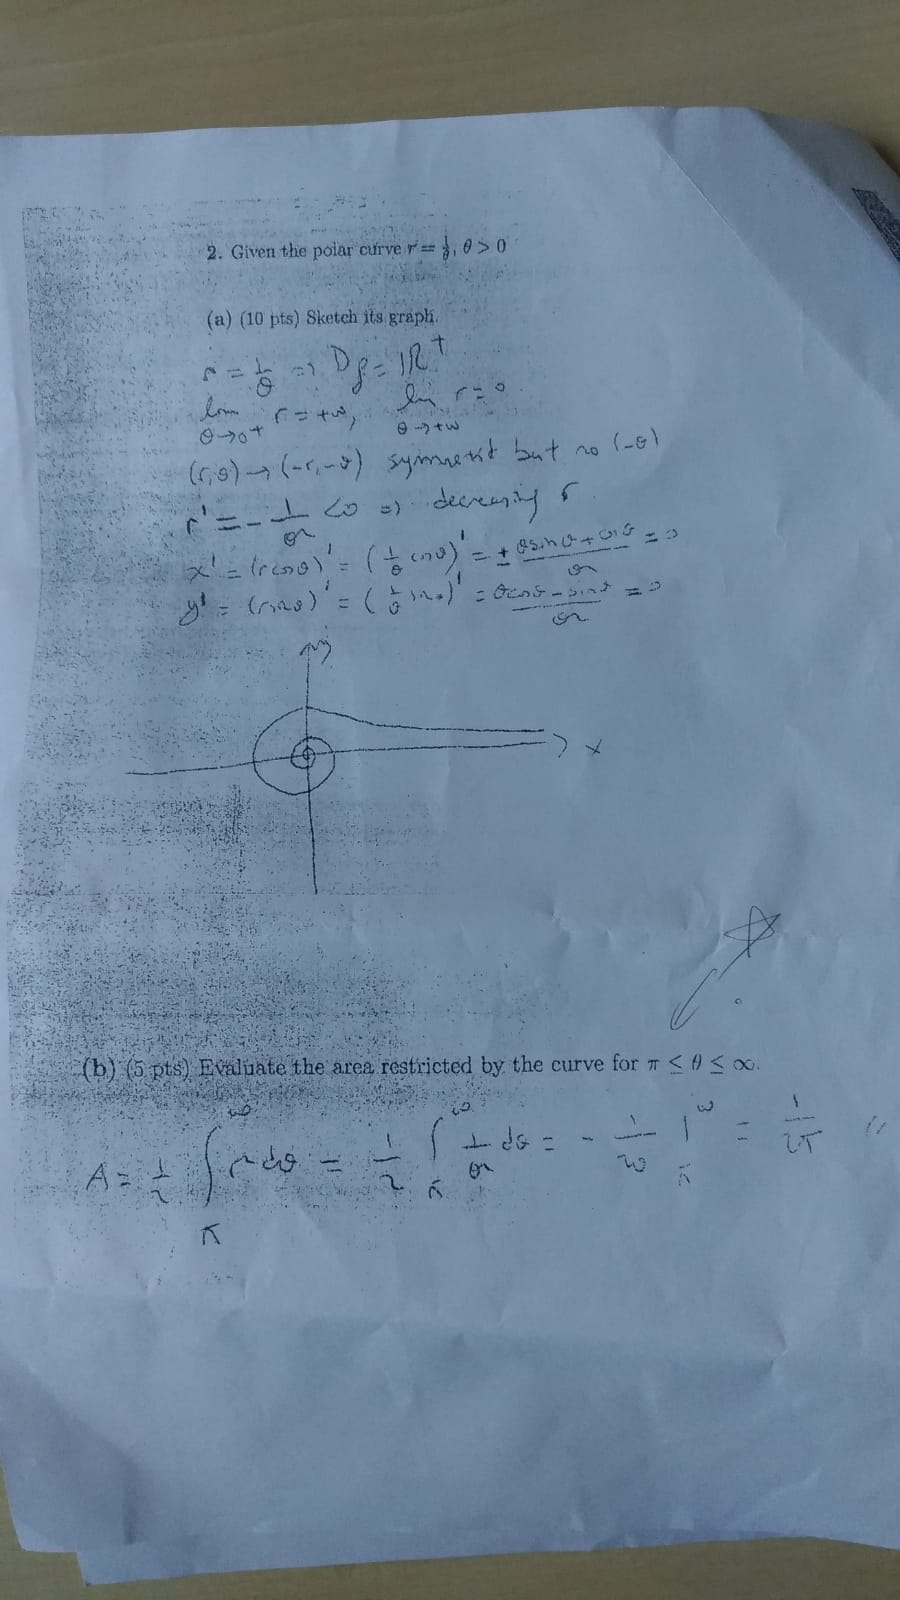 2. Given the polar curve r = 1/θ, θ > 0
(a) (10 pts) Sketch its graph.
r = 1/θ => Df = IR⁺
lim θ→0+ r = +∞, lim θ→+∞ r = 0
(r,θ) → (-r,-θ) symmetric but no (-θ)
r' = - 1/θ² < 0 => decreasing r
x' = (r cosθ)' = (1/θ cosθ)' = ± θsinθ + cosθ / θ² = 0
y' = (r sinθ)' = (1/θ sinθ)' = θcosθ - sinθ / θ² = 0
y
x
(b) (5 pts) Evaluate the area restricted by the curve for π ≤ θ ≤ ∞.
A = 1/2 ∫π^∞ r² dθ = 1/2 ∫π^∞ 1/θ² dθ = - 1/2θ |π^∞ = 1/2π //